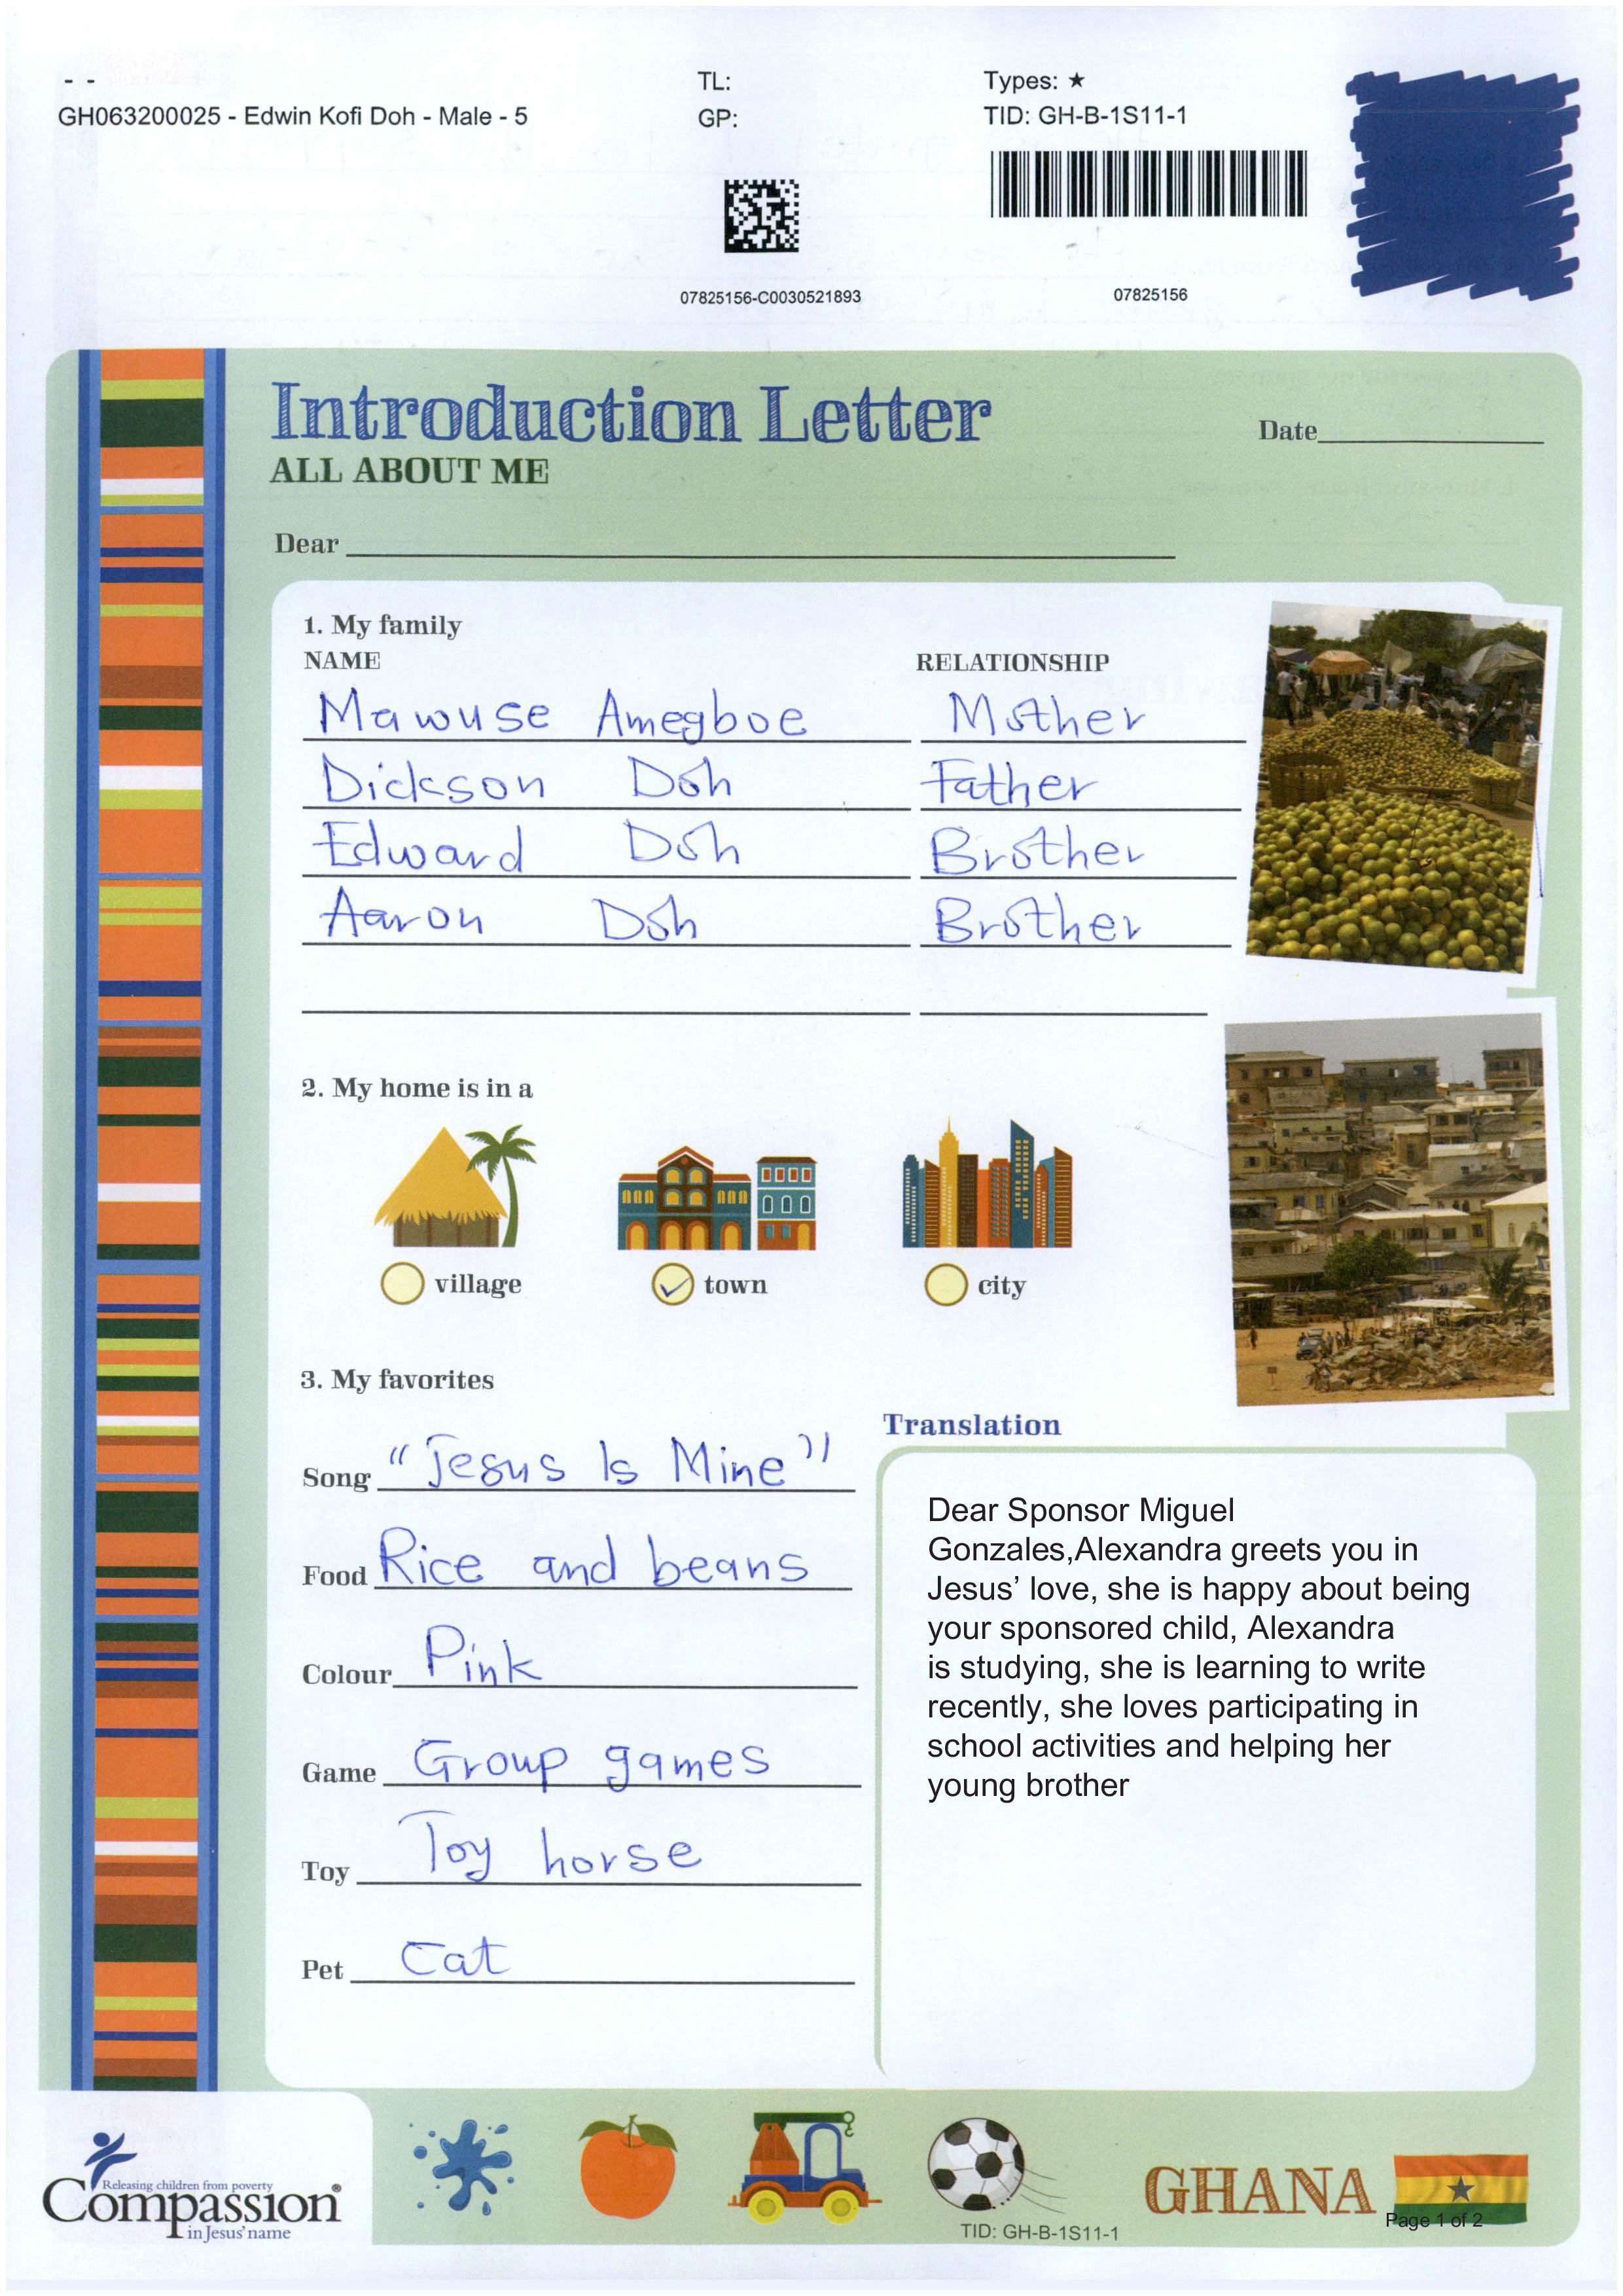 - -
GH063200025 - Edwin Kofi Doh - Male - 5
TL:
GP:
Types: ★
TID: GH-B-1S11-1
07825156-C0030521893
07825156
Introduction Letter
ALL ABOUT ME
Date
Dear
1. My family
NAME RELATIONSHIP
Mawuse Amegboe Mother
Dickson Doh Father
Edward Doh Brother
Aaron Doh Brother
2. My home is in a
village town city
3. My favorites
Song "Jesus Is Mine"
Food Rice and beans
Colour Pink
Game Group games
Toy Toy horse
Pet Cat
Translation
Dear Sponsor Miguel
Gonzales,Alexandra greets you in
Jesus’ love, she is happy about being
your sponsored child, Alexandra
is studying, she is learning to write
recently, she loves participating in
school activities and helping her
young brother
Releasing children from poverty
Compassion®
in Jesus' name
GHANA
Page 1 of 2
TID: GH-B-1S11-1